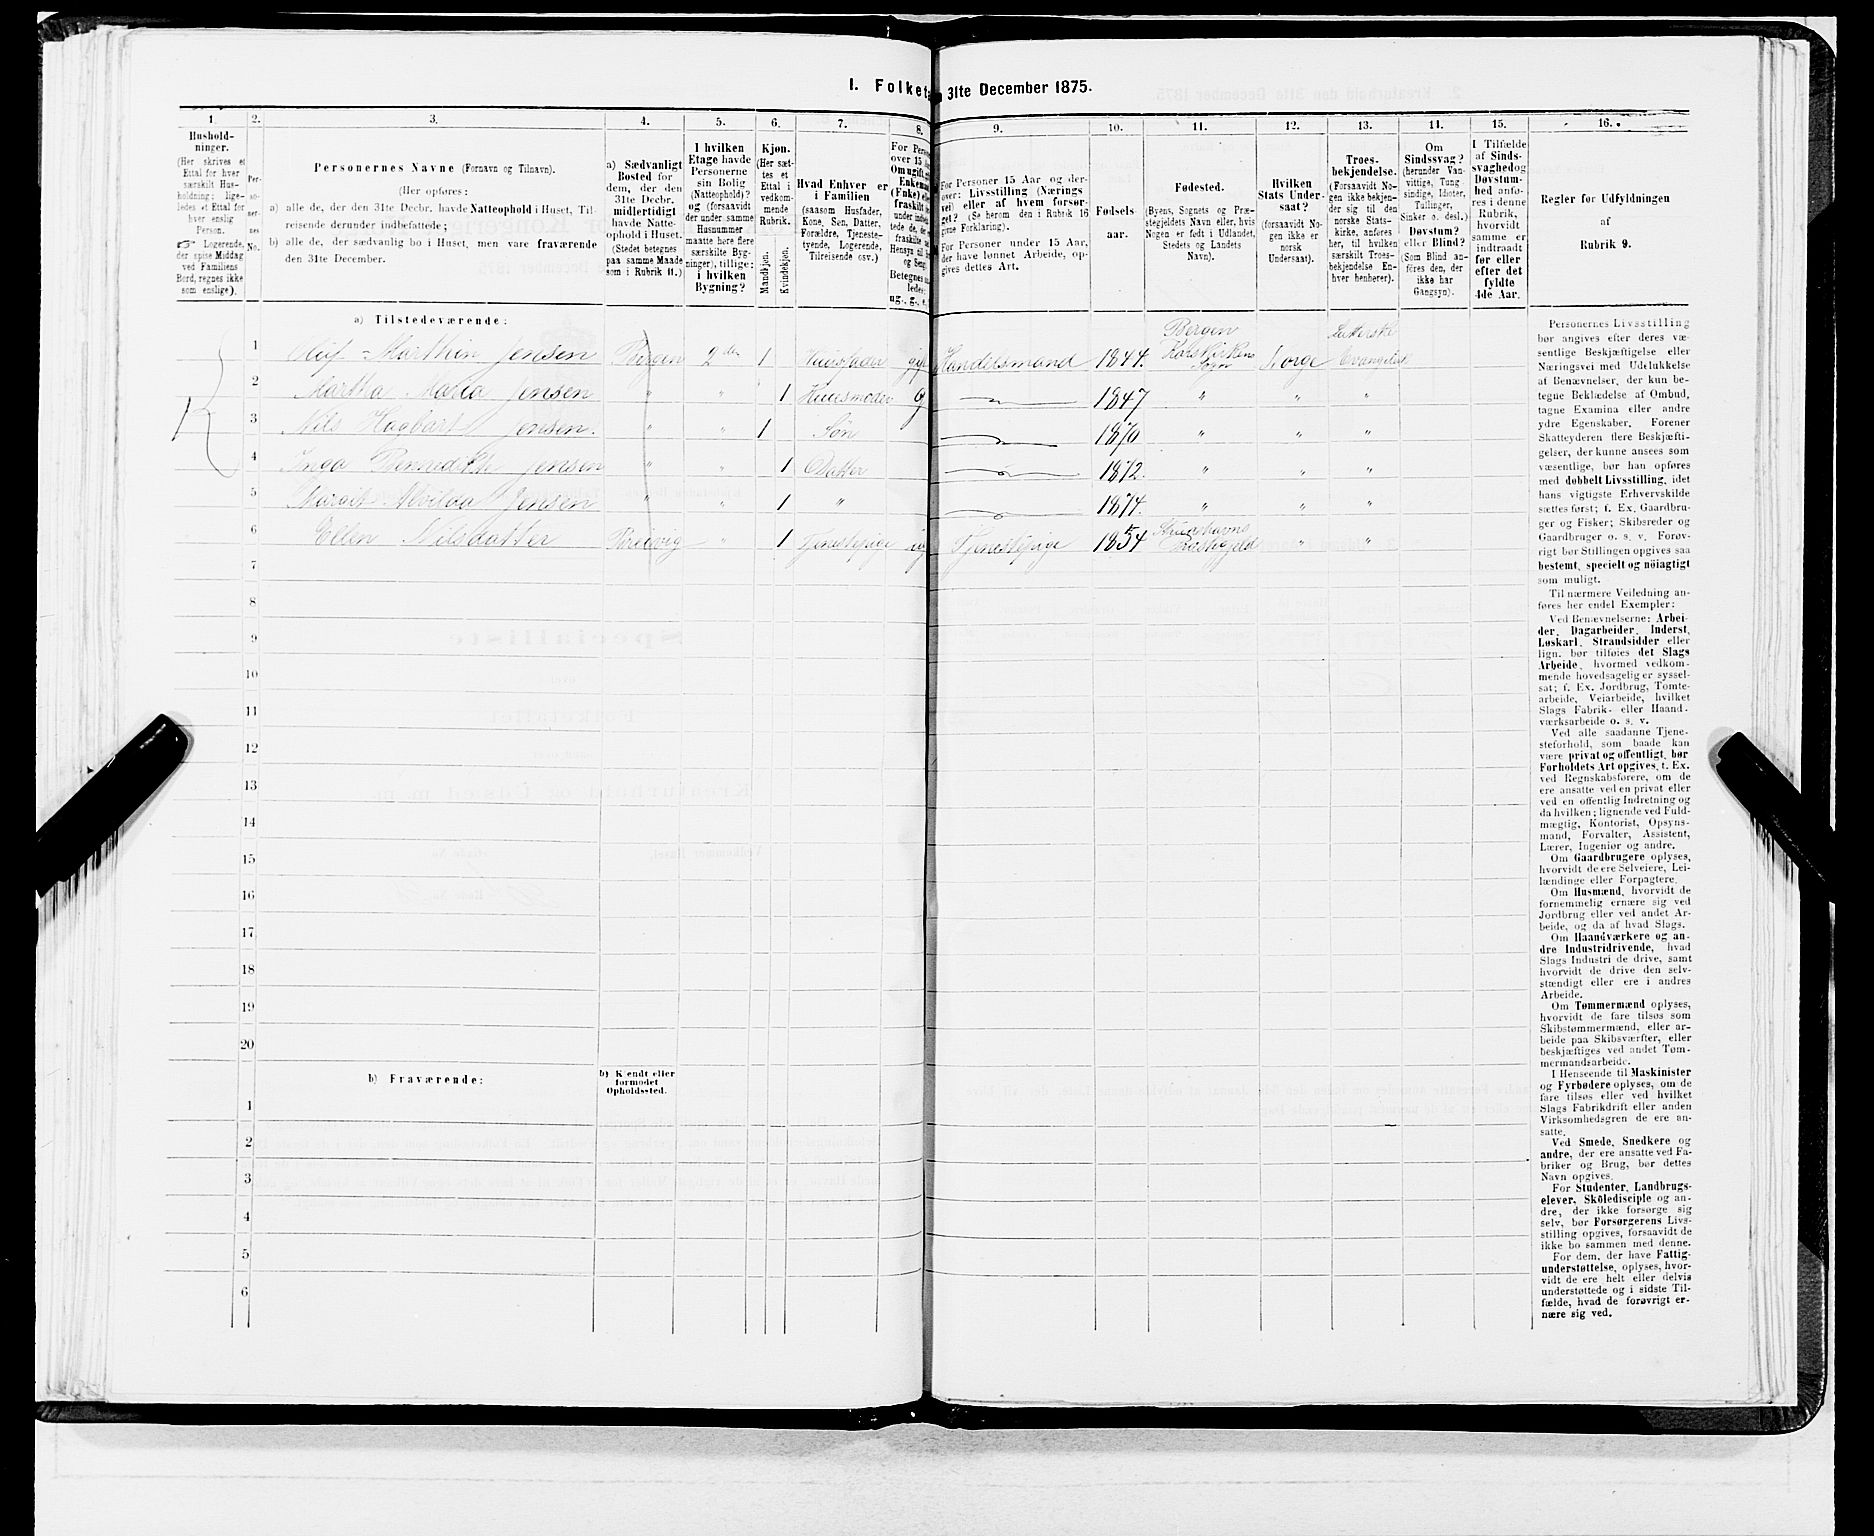 I. Folket
31te December 1875.
1. 2. 3. 4. 5. 6. 7. 8. 9. 10. 11. 12. 13. 14. 15. 16.
Hushold-
ninger.
(Her skrives et
Ettal for hver
særskilt Hus-
holdning; lige-
ledes et Ettal for
hver enslig
Person.
☞ Logerende,
der spise Middag
ved Familiens
Bord, regnes ikke
som enslige).
Per-
so-
ner-
nes
No.
Personernes Navne (Fornavn og Tilnavn).
(Her opføres:
a) alle de, der den 31te Decbr. havde Natteophold i Huset, Til-
reisende derunder indbefattede;
b) alle de, der sædvanlig bo i Huset, men vare fraværende
den 31te December.
a) Sædvanligt
Bosted for
dem, der den
31te Decbr.
midlertidigt
havde Natte-
ophold i Huset.
(Stedet betegnes
paa samme Maade
som i Rubrik 11.)
I hvilken
Etage havde
Personerne
sin Bolig
(Natteophold)?
og (forsaavidt
der under samme
Husnummer
maatte høre flere
særskilte Byg-
ninger), tillige:
i hvilken
Bygning?
Kjøn.
(Her sæt-
tes et
Ettal i
vedkom-
mende
Rubrik.
Mandkjøn.
Kvindekjøn.
Hvad Enhver er
i Familien
(saasom Husfader,
Kone, Søn, Datter,
Forældre, Tjeneste-
tyende, Logerende,
Tilreisende osv.)
For Pers
over 15
Om ugift,
Enkema
(Enke) el
fraskilt
under indbe
tede de, de
fraskilte
Hensyn til
og Seng.
Betegnes
ledes:
ug., g., e.
For Personer 15 Aar og der-
over: Livsstilling (Nærings
vei) eller af hvem forsør-
get? (Se herom den i Rubrik 16
givne Forklaring).
For Personer under 15 Aar,
der have lønnet Arbeide, op-
gives dettes Art.
Fødsels-
aar.
Fødested.
(Byens, Sognets og Præ-
stegjeldets Navn eller, hvis
Nogen er født i Udlandet,
Stedets og Landets
Navn).
Hvilken
Stats Under-
saat?
(forsaavidt No-
gen ikke er
norsk
Undersaat).
Troes-
bekjendelse.
(Forsaavidt No-
gen ikke bekjen-
der sig til den
norske Stats-
kirke, anføres
her, til hvilken
særskilt Troes-
bekjendelse En-
hver henhører).
Om
Sindssvag?
(herunder Van-
vittige, Tung-
sindige, Idioter,
Tullinger,
Sinker o. desl.)
Døvstum?
eller Blind?
(Som Blind an-
føres den, der
ikke har
Gangsyn).
I Tilfælde
af Sinds-
svaghed og
Døvstum-
hed anfø-
res i denne
Rubrik,
hvorvidt
samme er
indtraadt
før eller
efter det
fyldte
4de Aar.
Regler for Udfyldningen
af
Rubrik 9.
a) Tilstedeværende:
1 Oluf Marthin Jensen Bergen 2den 1 Huusfader gift Handelsmand 1844. Bergen Korskirkens Sogn Norge Lutherske Evangelisk
2 Martha Maria Jensen " " 1 Huusmoder G 1847 " " "
3 Nils Hagbart Jensen. " " 1 Søn 1870 " " "
4 Inga Bennedikte Jensen " " 1 Datter 1872. " " "
5 Margit Alvilda Jensen " " 1 " 1874. " " "
6 Ellen Nilsdatter Breivig " 1 Tjenestepige ug Tjenestepige 1854 Præstegjeld " "
7
8
9
10
11
12
13
14
15
16
17
18
19
20
b) Fraværende:
b) Kjendt eller
formodet
Opholdssted.
1
2
3
4
5
6
Personernes Livsstilling
bør angives efter deres væ-
sentlige Beskjæftigelse eller
Næringsvei med Udelukkelse
af Benævnelser, der kun be-
tegne Beklædelse af Ombud,
tagne Examina eller andre
ydre Egenskaber. Forener
Skatteyderen flere Beskjæfti-
gelser, der kunne ansees som
væsentlige, bør han opføres
med dobbelt Livsstilling, idet
hans vigtigste Erhvervskilde
sættes først; f. Ex. Gaardbru-
ger og Fisker; Skibsreder og
Gaardbruger o. s. v. Forøv-
rigt bør Stillingen opgives saa
bestemt, specielt og nöiagtigt
som muligt.
Til nærmere Veiledning an-
føres her endel Exempler:
Ved Benævnelserne: Arbei-
der, Dagarbeider, Inderst,
Løskarl, Strandsidder eller
lign. bør tilføies det Slags
Arbeide, hvormed vedkom-
mende hovedsagelig er syssel-
sat; f. Ex. Jordbrug, Tomte-
arbeide, Veiarbeide, hvilket
Slags Fabrik- eller Haand-
værksarbeide o. s. v.
Ved alle saadanne Tjene-
steforhold, som baade kan
være privat og offentligt, bør
Forholdets Art opgives, f. Ex.
ved Regnskabsførere, om de
ere ansatte ved en privat eller
ved en offentlig Indretning og
da hvilken; lignende ved Fuld-
mægtig, Kontorist, Opsyns-
mand, Forvalter, Assistent,
Lærer, Ingeniør og andre.
Om Gaardbrugere oplyses,
hvorvidt de ere Selveiere, Lei-
lændinge eller Forpagtere.
Om Husmænd, hvorvidt de
fornemmelig ernære sig ved
Jordbrug eller ved andet Ar-
beide, og da af hvad Slags.
Om Haandværkere og an-
dre Industridrivende, hvad
Slags Industri de drive, samt
hvorvidt de drive den selv-
stændigt eller ere i andres
Arbeide.
Om Tømmermænd oplyses,
hvorvidt de fare tilsøs som
Skibstømmermænd, eller ar-
beide paa Skibsværfter, eller
beskjæftiges ved andet Tøm-
mermandsarbeide.
I Henseende til Maskinister
og Fyrbødere oplyses, om de
fare tilsøs eller ved hvilket
Slags Fabrikdrift eller anden
Virksomhedsgren de ere an-
satte.
Ved Smede, Snedkere og
andre, der ere ansatte ved Fa-
briker og Brug, bør dettes
Navn opgives.
For Studenter, Landbrugs-
elever, Skòledisciple og an-
dre, der ikke forsørge sig
selv, bør Forsørgerens Livs-
stilling opgives, forsaavidt de
ikke bo sammen med denne.
For dem, der have Fattig-
understøttelse, oplyses, hvor-
vidt de ere helt eller delvis
understøttede og i sidste Til-
fælde, hvad de forøvrigt er-
nære sig ved.